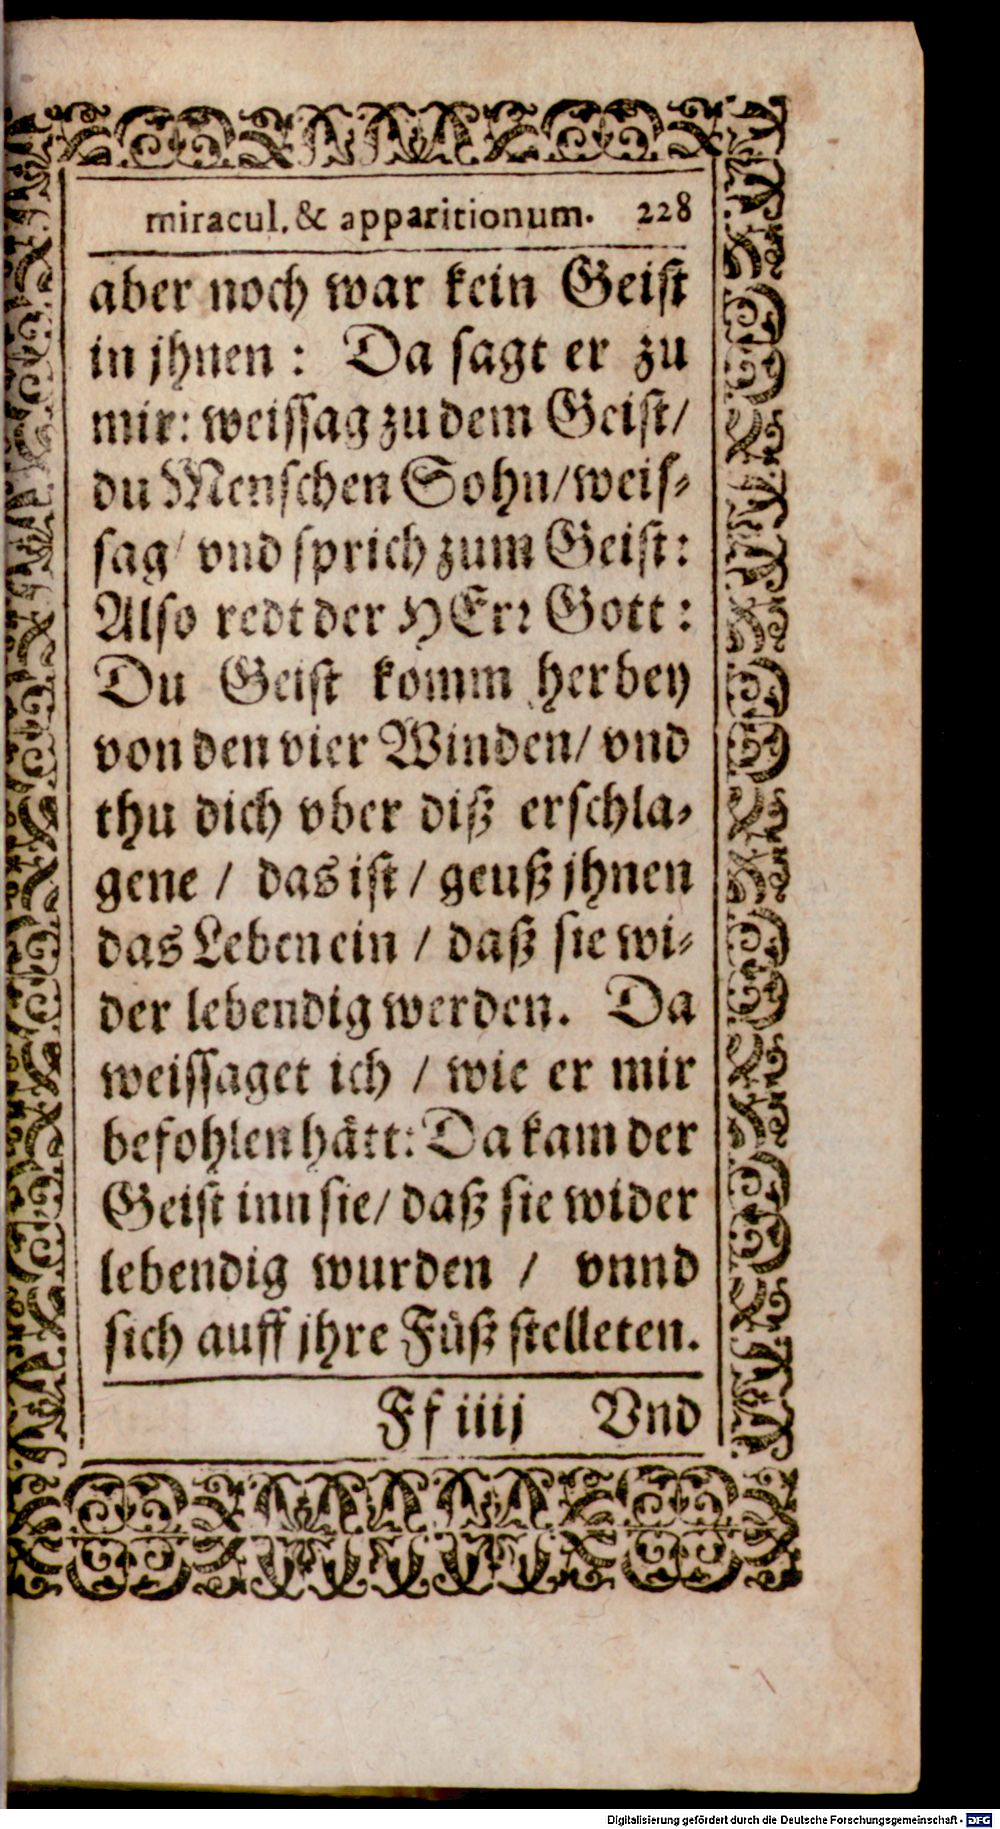 miracul. & apparitionum. 228
aber noch war kein Geist
in jhnen : Da sagt er zu
mir: weissag zu dem Geist/
du Menschen Sohn/weis-
sag/ vnd sprich zum Geist:
Also redt der HErr Gott:
Du Geist komm herbey
von den vier Winden/ vnd
thu dich vber diß erschla-
gene / das ist / geuß jhnen
das Leben ein / daß sie wi-
der lebendig werden. Da
weissaget ich / wie er mir
befohlen hätt: Da kam der
Geist inn sie/ daß sie wider
lebendig wurden / vnnd
sich auff jhre Füß stelleten.
Ff iiij Vnd
Digitalisierung gefördert durch die Deutsche Forschungsgemeinschaft - DFG